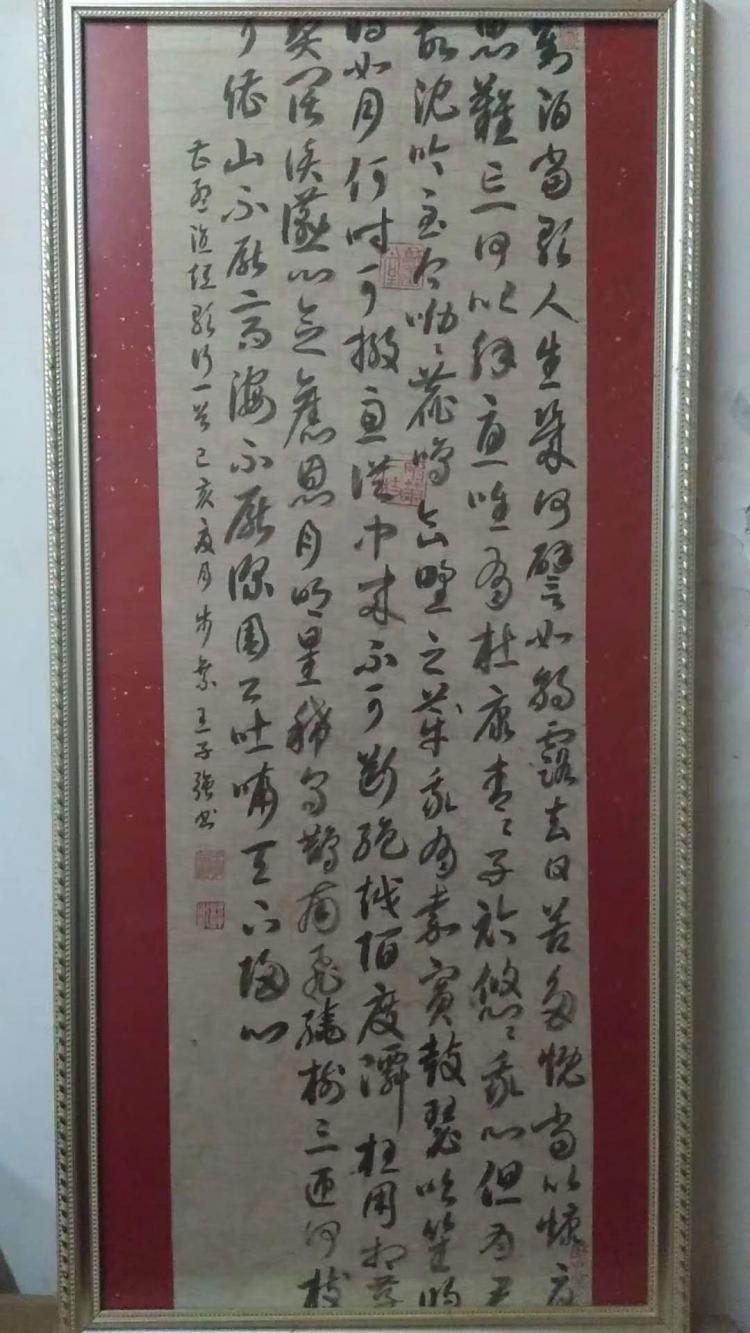 對酒當歌人生幾何譬如朝露去日苦多慨當以慷憂
思難忘何以解憂唯有杜康青々子衿悠々我心但為君
故沈吟至今呦々鹿鳴食野之苹我有嘉賓鼓瑟吹笙明
明如月何時可掇憂從中來不可斷絕越陌度阡枉用相存
契闊談讌心念舊恩月明星稀烏鵲南飛繞樹三匝何枝
可依山不厭高海不厭深周公吐哺天下歸心
孟德短歌行一首己亥夏月步業王子強書